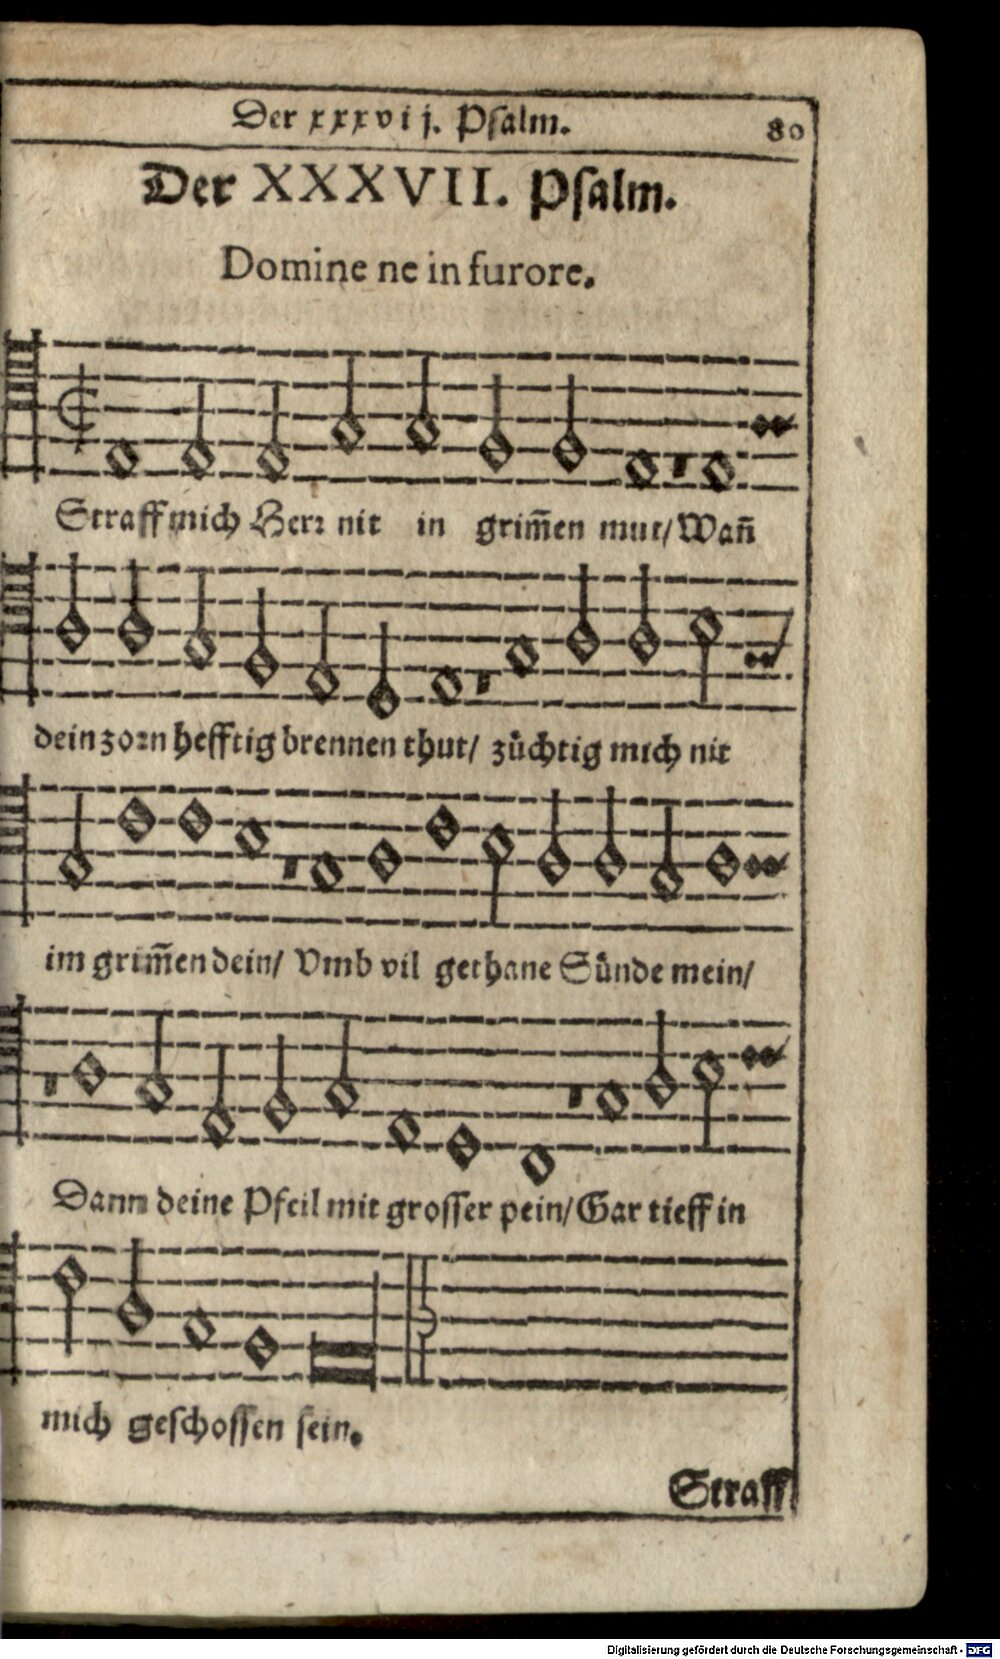 Der xxxvij. Psalm.
80
Der XXXVII. Psalm.
Domine ne in furore.
Straff mich Herr nit in grim̃en mut/ Wañ
dein zorn hefftig brennen thut/ züchtig mich nit
im grim̃en dein/ Vmb vil gethane Sünde mein/
Dann deine Pfeil mit grosser pein/ Gar tieff in
mich geschossen sein.
Straff
Digitalisierung gefördert durch die Deutsche Forschungsgemeinschaft - DFG